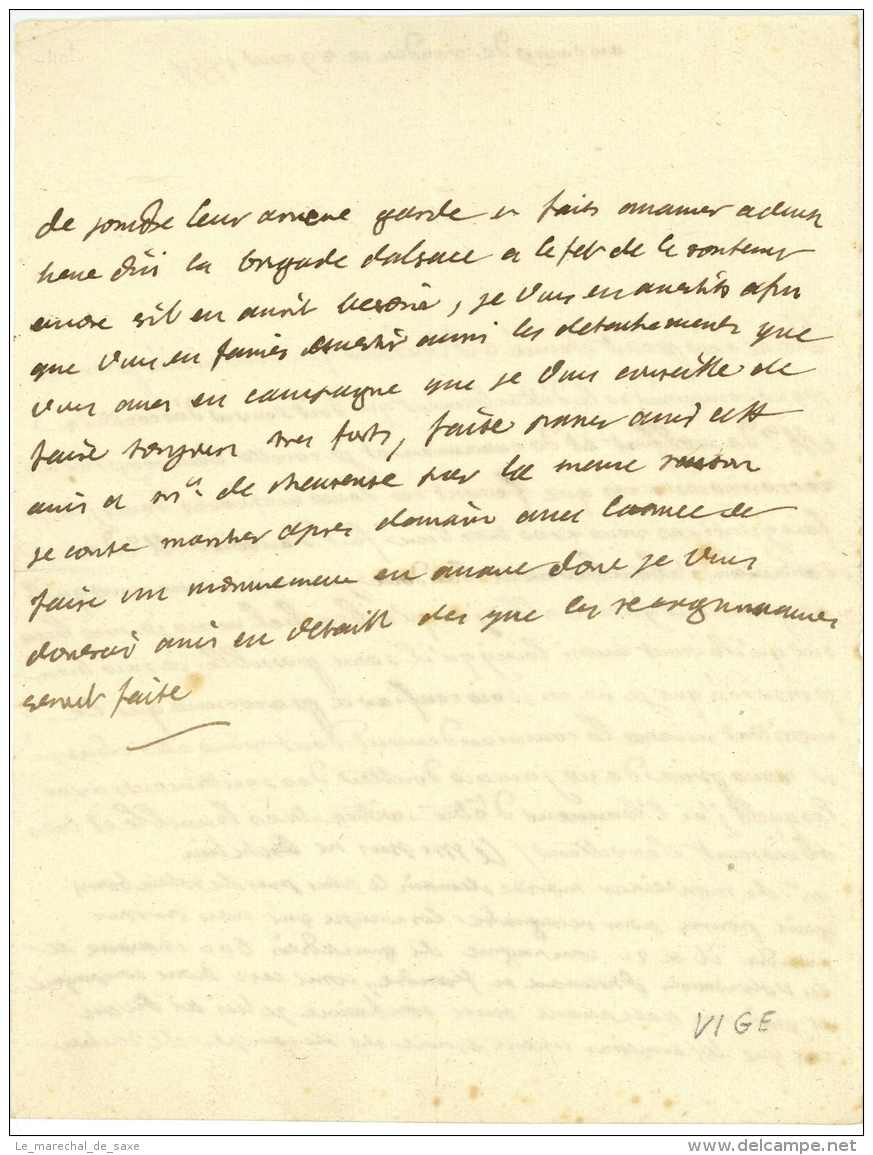 de joindre leur arriere garde et faits amaner a deux
heue dici la brigade dalsace a le fet de le soutenir
encore sil en avoit besoin, je vous en avertits afin
que vous en faniés avertir aussi les detachements que
vous aves en campagne que je vous conseille de
faire tres forts, faite passer aussi cett
avis a mr. de chevreuse par la meme raison
je conte marcher apres domain avec larmee de
faire un mouvement en avant dont je vous
donerai avis en detaill des que les
seroit faite
VIGE
Le_marechal_de_saxe
delcampe.net